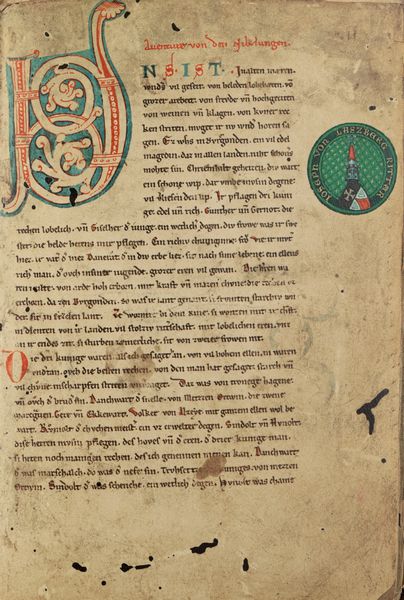 Auenture von den Nibelungen.
UNS · IST · In alten mæren
wnders vil geseit. von heleden lobebæren. vō
grozer arebeit. von frevde vn̄ hochgeciten
von weinen vn̄ klagen. von kvner rec
ken striten. mvget ir nv wnder horen sa
gen. Ez whs in Bvregonden. ein vil edel
magedin. daz in allen landen. niht schoners
mohte sin. Chriemhilt geheizen. div wart
ein schone wip. dar vmbe mvsin degene.
vil verliesen den lip. Ir pflagen dri kuni
ge. edel vn̄ rich. Gunther vn̄ Gernot. die
rechen lobelich. vn̄ Giselher d̓ iunge. ein wetlich degen. div frowe was ir swe
ster. die helde heten ir pflegen. Ein richiv chuniginne. frō Vte ir mvter
hiez. ir vater d̓ hiez Dancrat. d̓ in div erbe liez. sit nach sime lebene. ein ellens
rich man. d̓ ovch in siner iugende. grozer eren vil gewan. Die herren wa
ren milte. von arde hoh erborn. mit kraft vn̄ mazen chvne. die recken vz
erchorn. da zen Bvrgonden. so was ir lant genant. si frvmten starchiv wn
der. sit in Ezelen lant. Ze Wormz bi dem Rine. si wonten mit ir chraft.
in dienten von ir landen. vil stolziv ritterschaft. mit lobelichen eren. vnz
an ir endes zit. si sturben iæmerliche. sit von zweier frowen nit.
Die dri kunige waren. als ich gesaget han. von vil hohen ellen. in waren
vndertan. ovch die besten recken. von den man hat gesaget. starch vn̄
vil chvne. in scharpfen striten vnverzaget. Daz was von Tronege Hagene.
vn̄ ovch d̓ brvd̓ sin. Danchwart d̓ snelle. von Metzen Ortwin. die zwene
marcgraven. Gere vn̄ Ekkewart. Volker von Alzeye. mit ganzem ellen wol be
wart. Rvmolt d̓ chvchenmeist̓. ein vz erwelter degen. Sindolt vn̄ Hvnolt.
dise herren mvsin pflegen. des hoves vn̄ d̓ eren. d̓ drier kunige man.
si heten noch manigen recken. des ich genennen nienen kan. Danchwart
d̓ was marschalch. do was d̓ nefe sin. Trvhsetze des kuniges. von Metzen
Ortwin. Sindolt d̓ was schenche. ein wetlich degen. Hvnolt was chame
JOSEPH VON LASZBERG RITTER